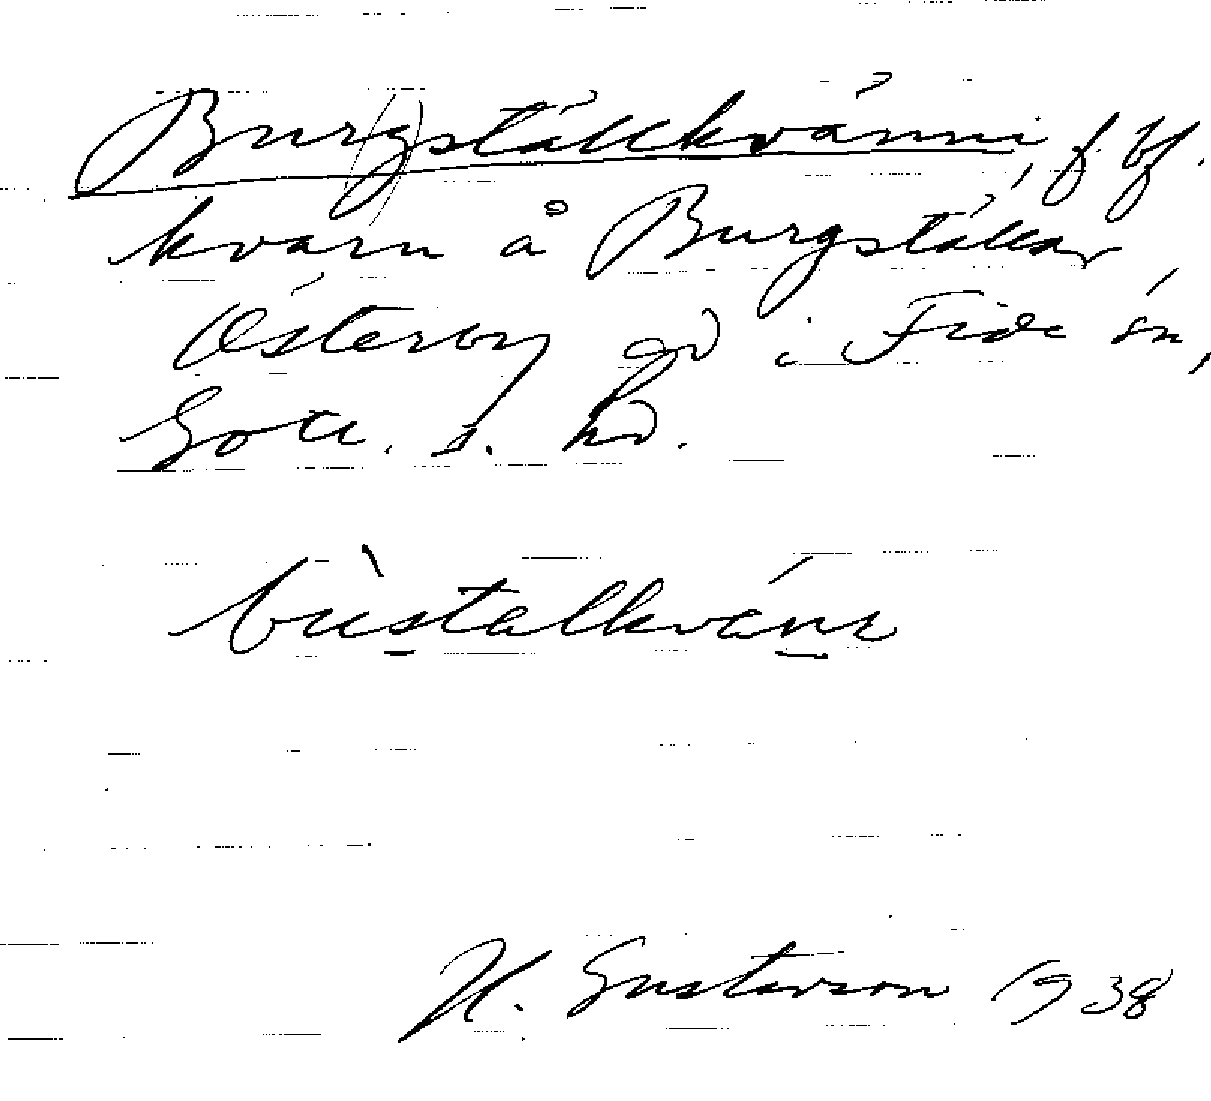 Bur(g)ställkvänni, f bf.
kvarn å Burgställar
Österby gd i Fide sn,
Gotl. s. hd.
bùstalkváni
H. Gustavson 1938